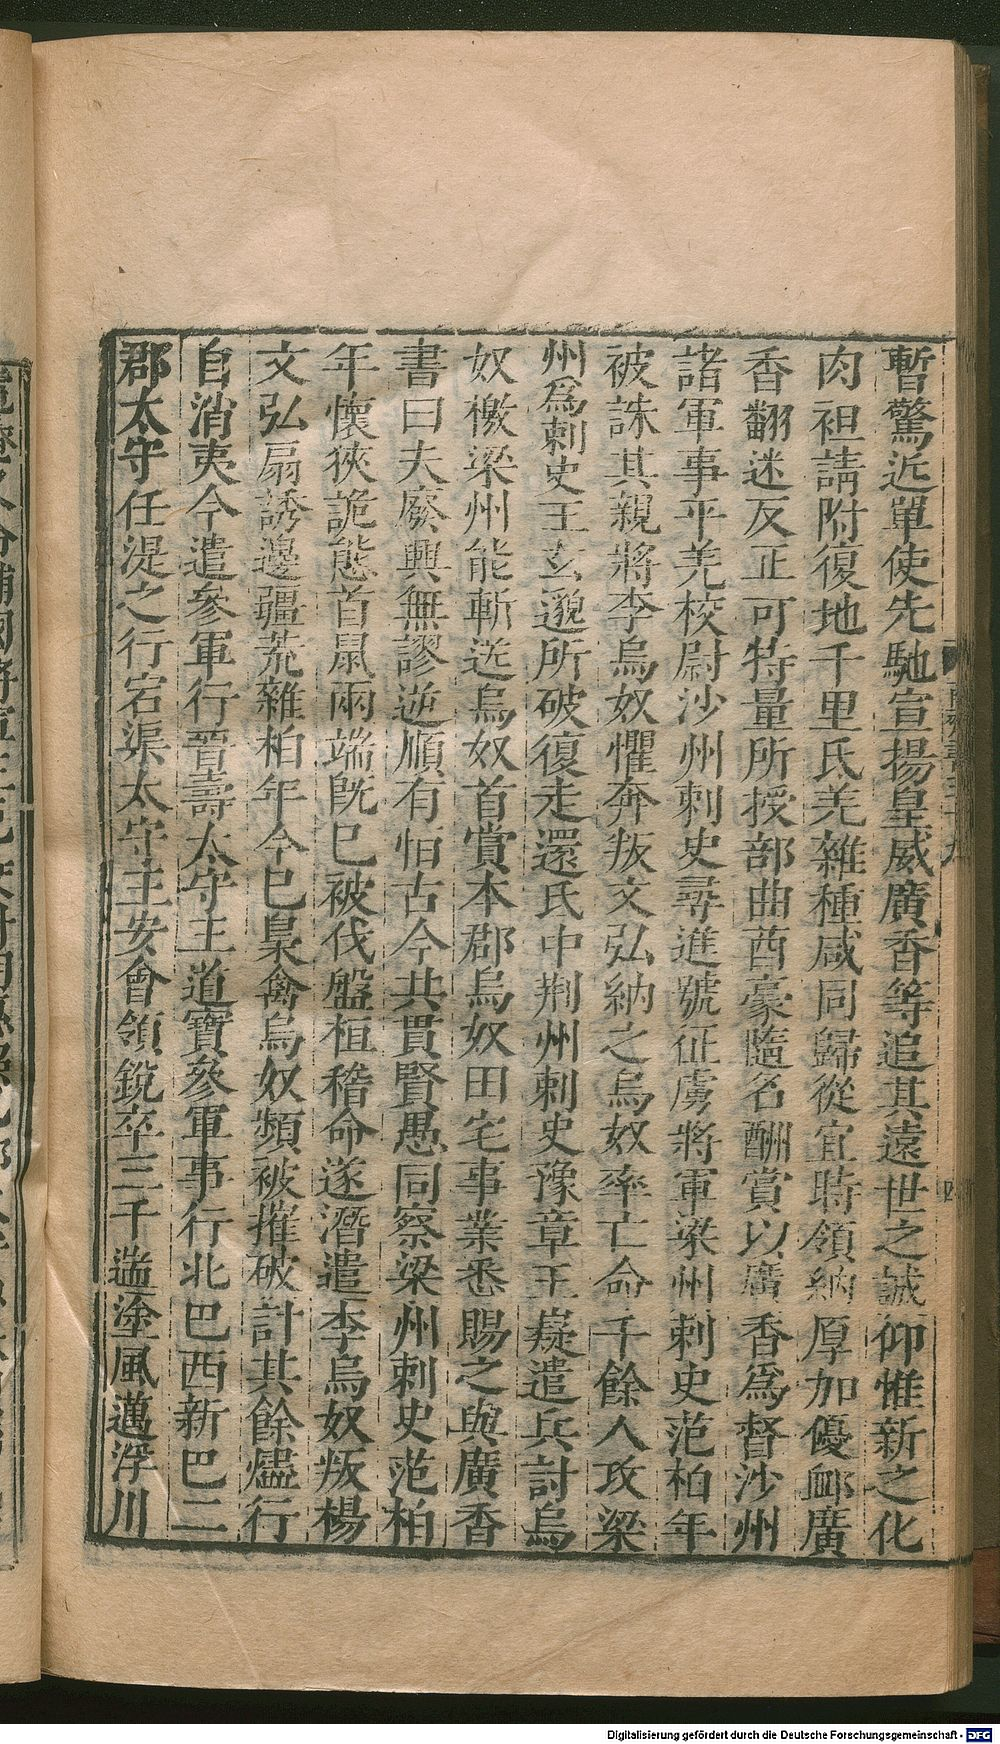 暫驚近單使先馳宣揚皇威廣香等追其遠世之誠仰惟新之化
肉袒請附復地千里氐羌雜種咸同歸從宜時領納厚加優䘏廣
香翻迷反正可特量所授部曲酋豪隨名酬賞以廣香爲督沙州
諸軍事平羌校尉沙州刺史尋進號征虜將軍梁州刺史范柏年
被誅其親將李烏奴懼奔叛文弘納之烏奴率亡命千餘人攻梁
州爲刺史王玄邈所破復走還氐中荆州刺史豫章王嶷遣兵討烏
奴檄梁州能斬送烏奴首賞本郡烏奴田宅事業悉賜之與廣香
書曰夫廢興無謬逆順有恒古今共貫賢愚同察梁州刺史范柏
年懷挾詭態首鼠兩端旣已被伐盤桓稽命遂潛遣李烏奴叛楊
文弘扇誘邊疆荒雜柏年今已梟禽烏奴頻被摧破計其餘燼行
自消夷今遣參軍行晉壽太守王道寶參軍事行北巴西新巴二
郡太守任湜之行宕渠太守王安會領銳卒三千遄塗風邁浮川
四
Digitalisierung gefördert durch die Deutsche Forschungsgemeinschaft - DFG